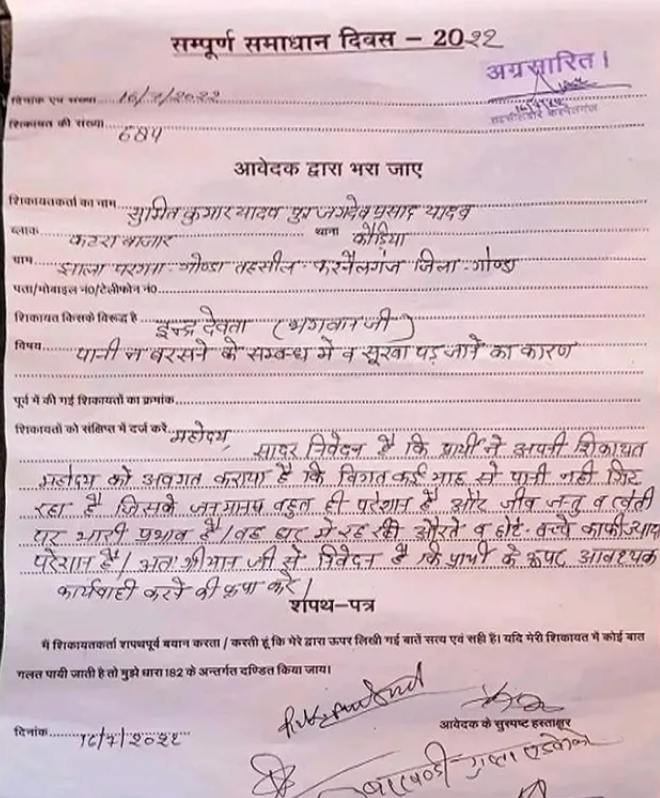 सम्पूर्ण समाधान दिवस – 2022
अग्रसारित।
दिनांक एवं संख्या 16/7/2022
शिकायत की संख्या
684
आवेदक द्वारा भरा जाए
शिकायतकर्ता का नाम सुमित कुमार यादव पुत्र जगदेव प्रसाद यादव
ब्लाक कटरा बाजार थाना कौडिया
ग्राम झाला परगना - गोण्डा तहसील - करनैलगंज जिला - गोण्डा
पता/मोबाइल नं0/टेलीफोन नं0
शिकायत किसके विरूद्ध है इन्द्र देवता (भगवान जी)
विषय पानी न बरसने के सम्बन्ध में व सूखा पड़ जाने का कारण
पूर्व में की गई शिकायतों का क्रमांक
शिकायतों को संक्षिप्त में दर्ज करे महोदय,
सादर निवेदन है कि प्रार्थी ने अपनी शिकायत
महोदय को अवगत कराया है कि विगत कई माह से पानी नही गिर
रहा है जिसके जनमानस बहुत ही परेशान है और जीव जन्तु व खेती
पर भारी प्रभाव है/ वह घर में रह रही औरते व छोटे-बच्चे काफी ज्यादा
परेशान है/ अतः श्रीमान जी से निवेदन है कि प्रार्थी के ऊपर आवश्यक
कार्यवाही करने की कृपा करे/
शपथ–पत्र
मैं शिकायतकर्ता शपथपूर्ण बयान करता / करती हूं कि मेरे द्वारा ऊपर लिखी गई बातें सत्य एवं सही है। यदि मेरी शिकायत में कोई बात
गलत पायी जाती है तो मुझे धारा 182 के अन्तर्गत दण्डित किया जाय।
आवेदक के सुस्पष्ट हस्ताक्षर
दिनांक 16/7/2022